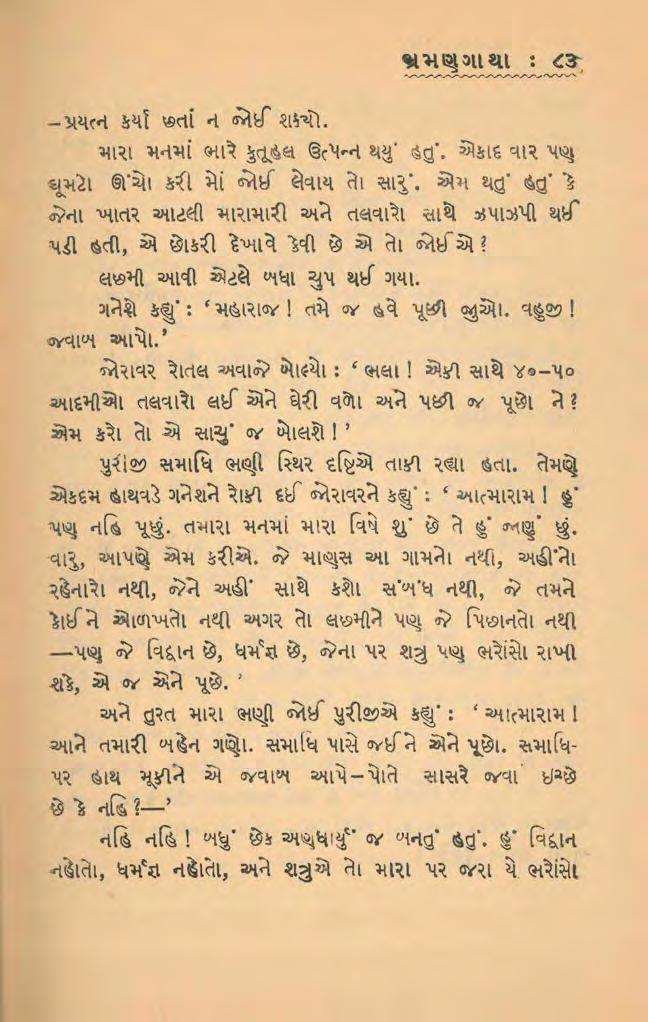 ભ્રમણગાથા : ૮૩
–પ્રયત્ન કર્યા છતાં ન જોઈ શક્યો.
મારા મનમાં ભારે કુતૂહલ ઉત્પન્ન થયું હતું. એકાદ વાર પણ
ઘૂમટો ઊંચો કરી મોં જોઈ લેવાય તો સારું. એમ થતું હતું કે
જેના ખાતર આટલી મારામારી અને તલવારો સાથે ઝપાઝપી થઈ
પડી હતી, એ છોકરી દેખાવે કેવી છે એ તો જોઈએ ?
લછમી આવી એટલે બધા ચુપ થઈ ગયા.
ગનેશે કહ્યું : ‘મહારાજ ! તમે જ હવે પૂછી જુઓ. વહુજી !
જવાબ આપો.’
જોરાવર રોતલ અવાજે બોલ્યો : ‘ ભલા ! એકી સાથે ૪૦–૫૦
આદમીઓ તલવારો લઈ એને ઘેરી વળો અને પછી જ પૂછો ને ?
એમ કરો તો એ સાચું જ બોલશે ! ’
પુરીજી સમાધિ ભણી સ્થિર દૃષ્ટિએ તાકી રહ્યા હતા. તેમણે
એકદમ હાથવડે ગનેશને રોકી દઈ જોરાવરને કહ્યું : ‘ આત્મારામ ! હું
પણ નહિ પૂછું. તમારા મનમાં મારા વિષે શું છે તે હું જાણું છું.
વારુ, આપણે એમ કરીએ. જે માણુસ આ ગામનો નથી, અહીંનો
રહેનારો નથી, જેને અહીં સાથે કશો સંબંધ નથી, જે તમને
કોઈને ઓળખતો નથી અગર તો લછમીને પણ જે પિછાનતો નથી
—પણુ જે વિદ્વાન છે, ધર્મજ્ઞ છે, જેના પર શત્રુ પણ ભરોંસો રાખી
શકે, એ જ એને પૂછે. ’
અને તુરત મારા ભણી જોઈ પુરીજીએ કહ્યું : ‘ આત્મારામ !
આને તમારી બહેન ગણો. સમાધિ પાસે જઈને એને પૂછો. સમાધિ-
પર હાથ મૂકીને એ જવાબ આપે–પોતે સાસરે જવા ઇચ્છે
છે કે નહિ ?—’
નહિ નહિ ! બધું છેક અણધાર્યું જ બનતું હતું. હું વિદ્વાન
નહોતો, ધર્મજ્ઞ નહોતો, અને શત્રુએ તો મારા પર જરા યે ભરોંસો